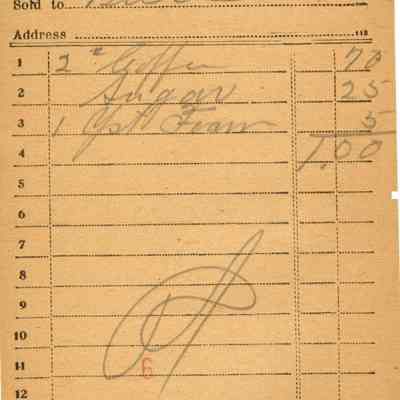 Sold to
Address
1 2 Coffee 70
2 Sugar 25
3 1 5
4 1.00
5
6
7
8
9
10
11
12